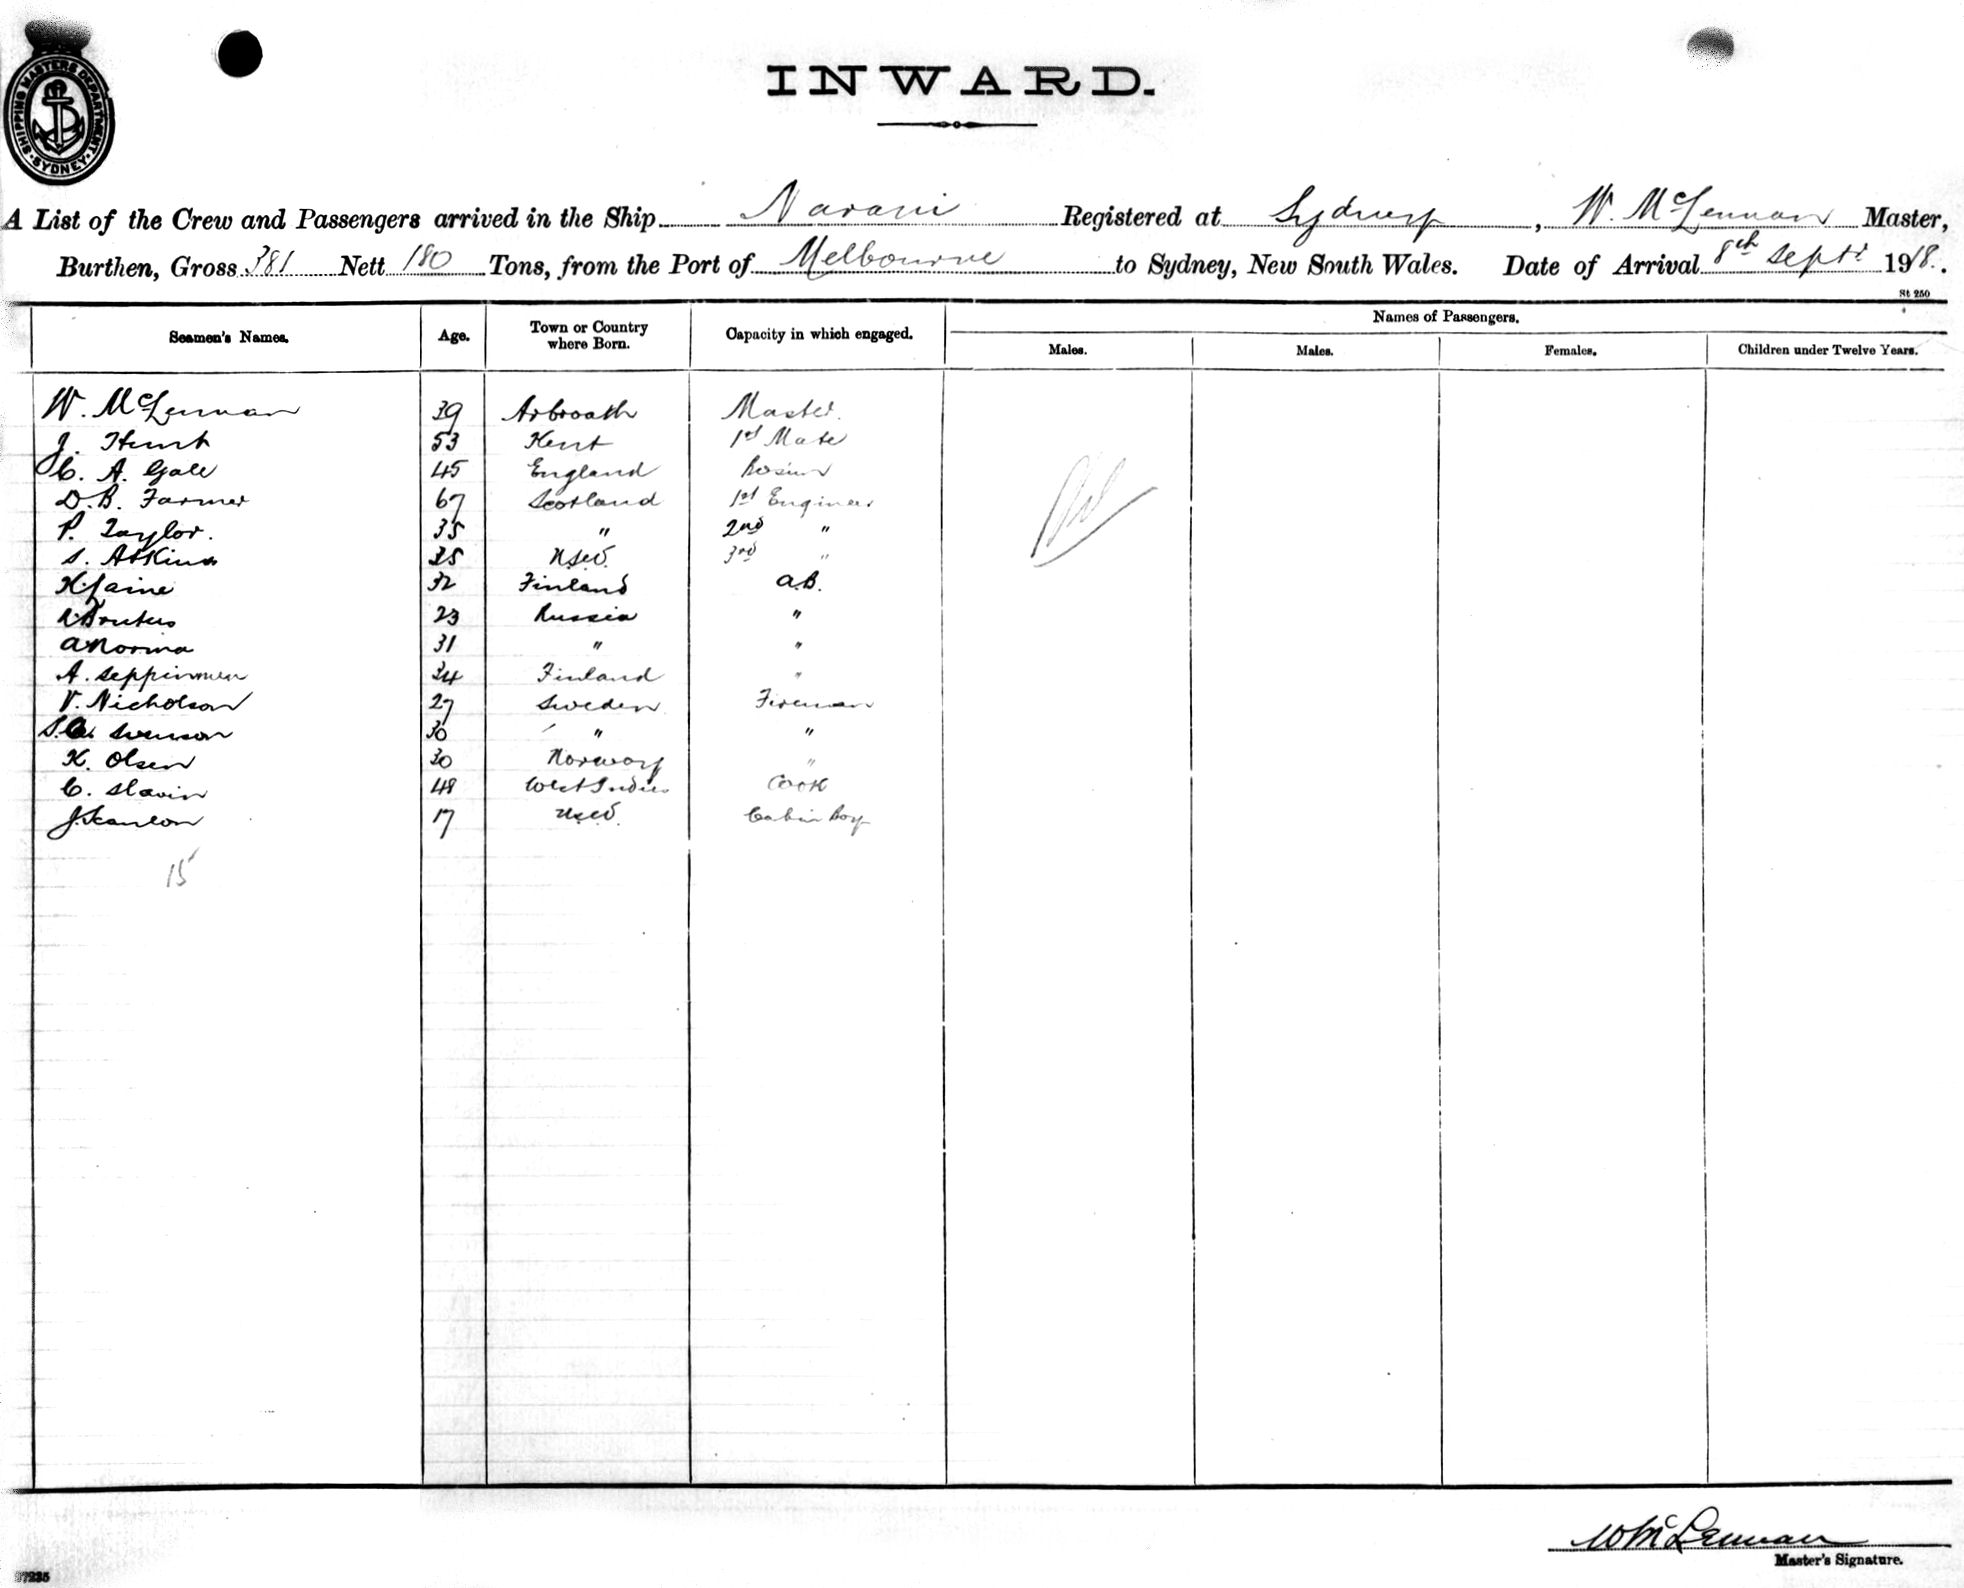 SHIPPING MASTERS DEPARTMENT · SYDNEY ·
INWARD.
A List of the Crew and Passengers arrived in the Ship Narani Registered at Sydney, W. McLennan Master,
Burthen, Gross 381 Nett 180 Tons, from the Port of Melbourne to Sydney, New South Wales. Date of Arrival 8th Sept 1918.
St 250
Seamen's Names. Age. Town or Country where Born. Capacity in which engaged. Names of Passengers.
Males. Males. Females. Children under Twelve Years.
W. McLennan 39 Arbroath Master
J. Hunt 53 Kent 1st Mate
C. A. Gale 45 England Bosun
D. B. Farmer 67 Scotland 1st Engineer
P. Taylor. 35 " 2nd "
S. Atkins 35 NSW. 3rd "
K. Laine 32 Finland A.B.
23 Russia "
A Norma 31 " "
A. Seppinmen 34 Finland "
V. Nicholson 27 Sweden Fireman
Swenson 30 " "
K. Olsen 30 Norway "
C. Slavin 48 West Indies Cook
J. Scanlon 17 NSW. Cabin Boy
15
W McLennan
Master's Signature.